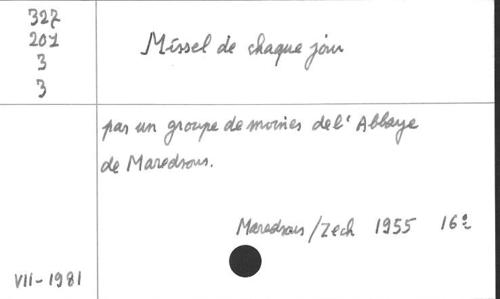 327
201
3
3
Missel de chaque jour
par un groupe de moines de l'Abbaye
de Maredsous.
Maredsous/Zech 1955 16º
VII-1981